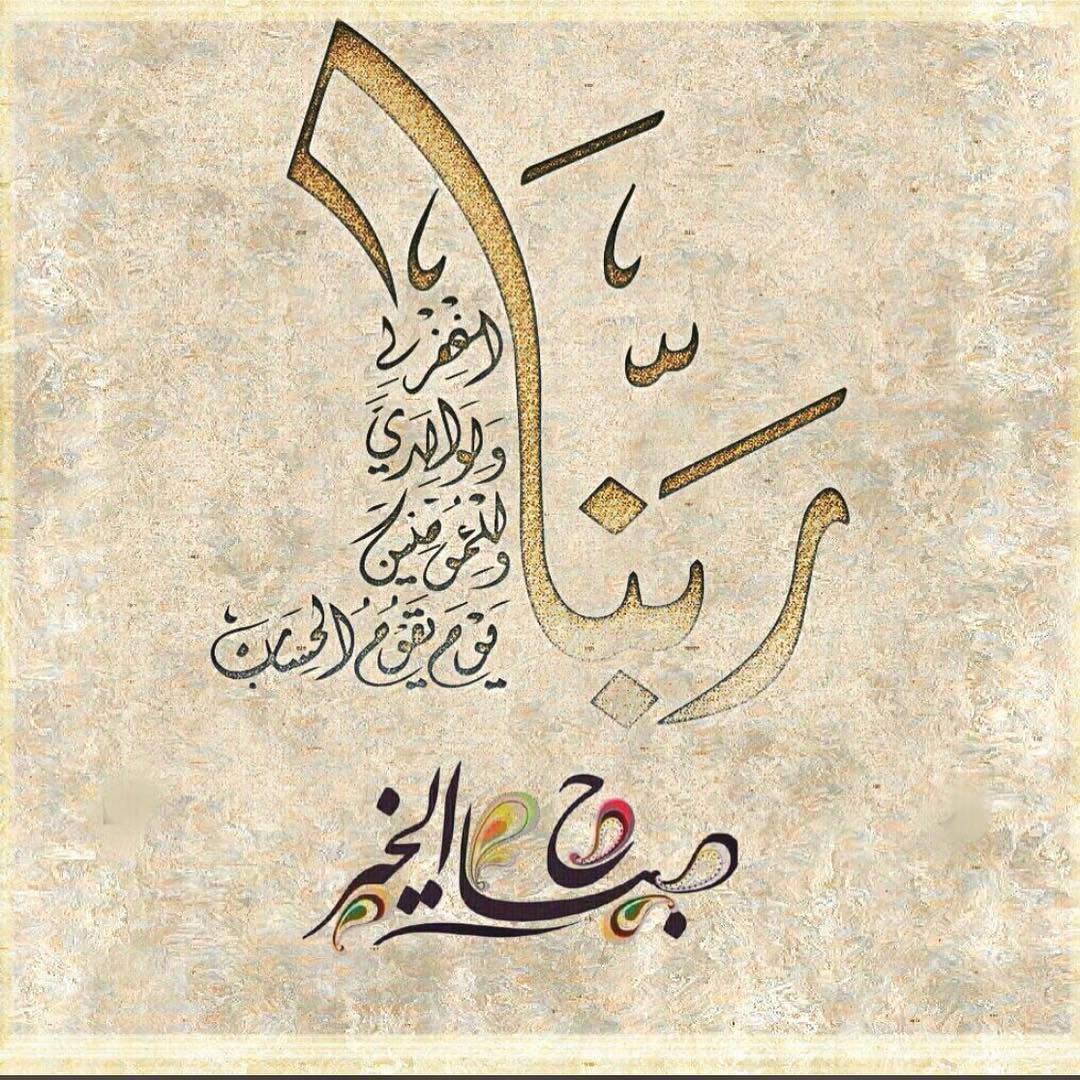 رَبَّنَا
اغْفِرْ لِي
وَلِوَالِدَيَّ
وَلِلْمُؤْمِنِينَ
يَوْمَ يَقُومُ الْحِسَابُ
صباح الخير